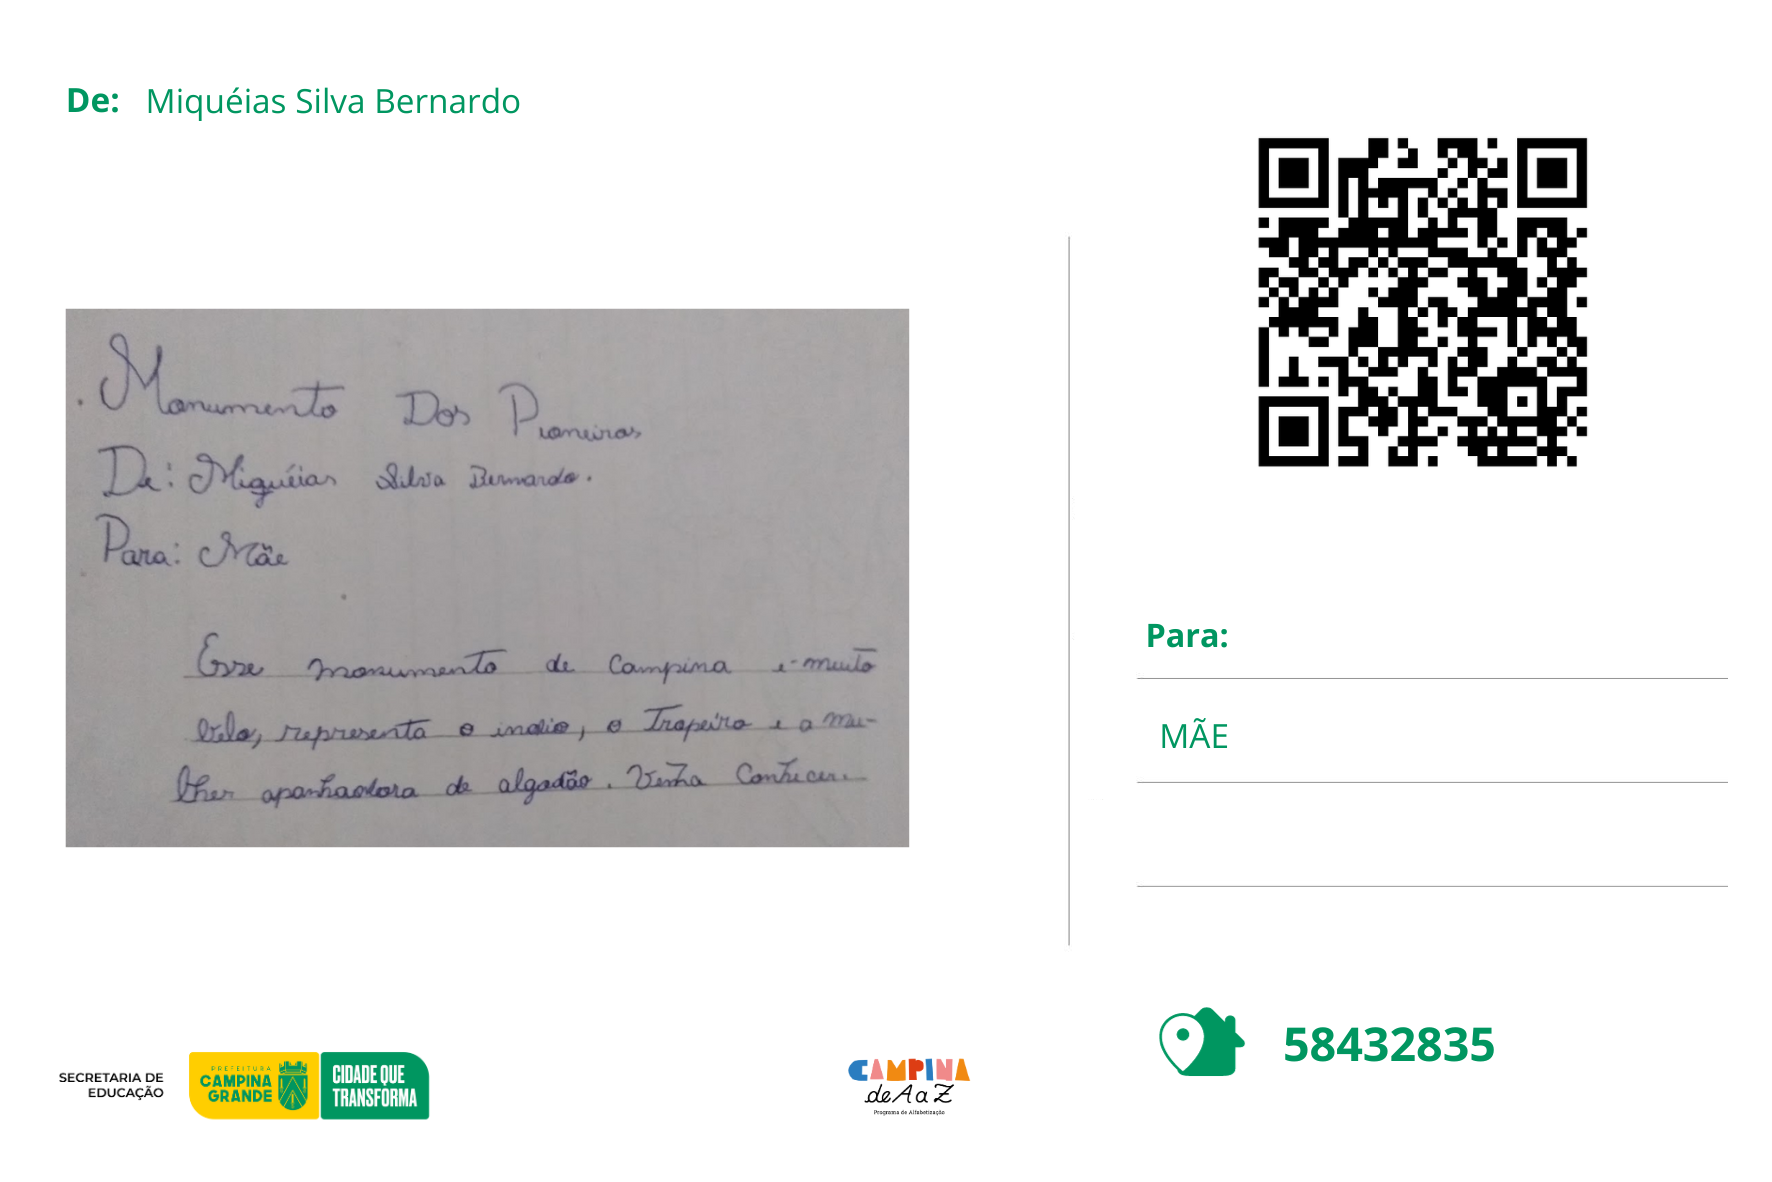 De: Miquéias Silva Bernardo
Monumento Dos Pioneiros
De: Miquéias Silva Bernardo.
Para: Mãe
Esse monumento de Campina e muito
belo, representa o indio, o Tropeiro e a mu-
lher apanhadora de algodão. Venha Conhecer.
Para:
MÃE
58432835
SECRETARIA DE
EDUCAÇÃO
PREFEITURA
CAMPINA
GRANDE
CIDADE QUE
TRANSFORMA
CAMPINA
de A a Z
Programa de Alfabetização